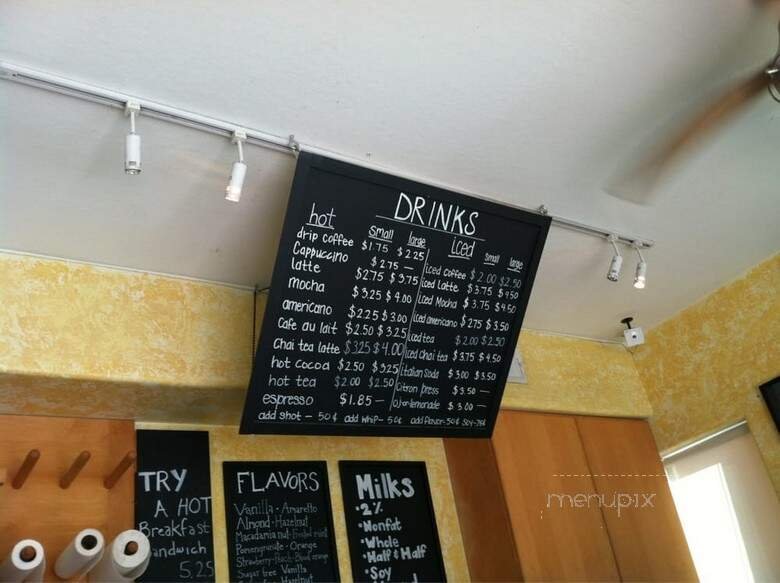 DRINKS
hot small large
drip coffee $1.75 $2.25
Cappuccino $2.75 —
latte $2.75 $3.75
mocha $3.25 $4.00
americano $2.25 $3.00
Cafe au lait $2.50 $3.25
Chai tea latte $3.25 $4.00
hot cocoa $2.50 $3.25
hot tea $2.00 $2.50
espresso $1.85 —
iced small large
iced coffee $2.00 $2.50
iced Latte $3.75 $4.50
iced Mocha $3.75 $4.50
iced americano $2.75 $3.50
iced tea $2.00 $2.50
iced chai tea $3.75 $4.50
italian Soda $3.00 $3.50
Citron press $3.50 —
oj or lemonade $3.00 —
add shot - 50¢ add whip - 50¢ add flavor - 50¢ Soy - 75¢
TRY
A HOT
Breakfast
Sandwich
5.25
FLAVORS
Vanilla · Amaretto
Almond · Hazelnut
Macadamia nut
Pomegranate · Orange
Strawberry · Peach · Blood orange
Sugar free Vanilla
Hazelnut
Milks
• 2%
• Nonfat
• Whole
• Half & Half
• Soy
menupix